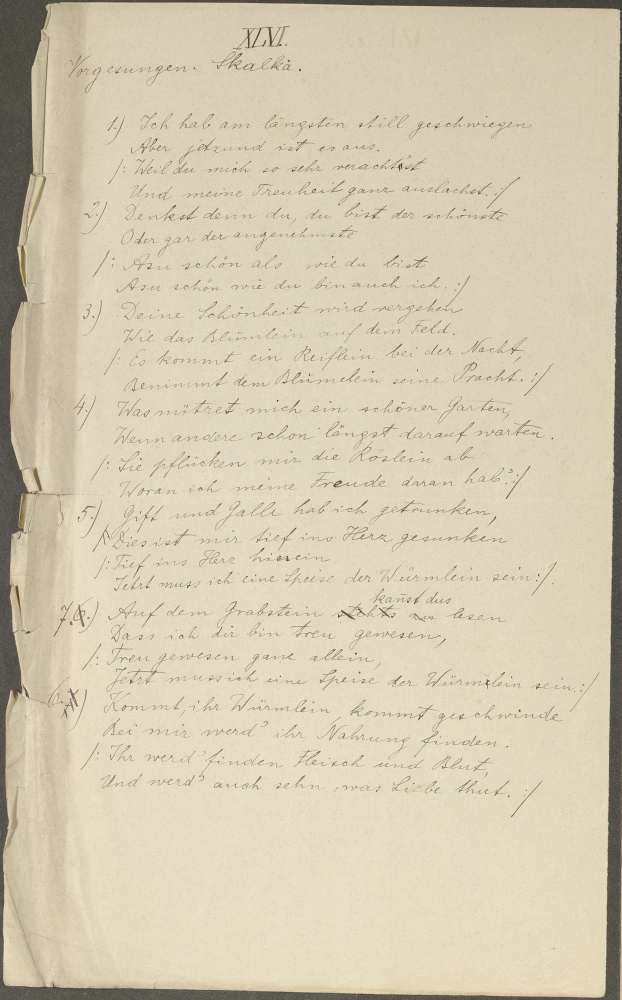 XLVI.
Vorgesungen. Skalka.
1.) Ich hab am längsten still geschwiegen
Aber jetzund ist es aus.
/: Weil du mich so sehr verachtest
Und meine Treuheit ganz auslachst. :/
2.) Denkst denn du, du bist der schönste
Oder gar der angenehmste
/: Asu schön als wie du bist
Asu schön wie du bin auch ich. :/
3.) Deine Schönheit wird vergehen
Wie das Blümlein auf dem Feld.
/: Es kommt ein Reiflein bei der Nacht,
Benimmt dem Blümelein seine Pracht. :/
4.) Was nützet mich ein schöner Garten,
Wenn andere schon längst darauf warten.
/: Sie pflücken mir die Röslein ab
Woran ich meine Freude daran hab'. :/
5.) Gift und Galle hab ich getrunken,
Dies ist mir tief ins Herz gesunken
/: Tief ins Herz hinein
Jetzt muss ich eine Speise der Würmlein sein :/.
kannst dus
7.) Auf dem Grabstein lesen
Dass ich dir bin treu gewesen,
/: Treu gewesen ganz allein,
Jetzt muss ich eine Speise der Würmlein sein :/
6.) Kommt, ihr Würmlein, kommt geschwinde
Bei mir werd' ihr Nahrung finden.
/: Ihr werd' finden Fleisch und Blut,
Und werd' auch sehn, was Liebe thut. :/